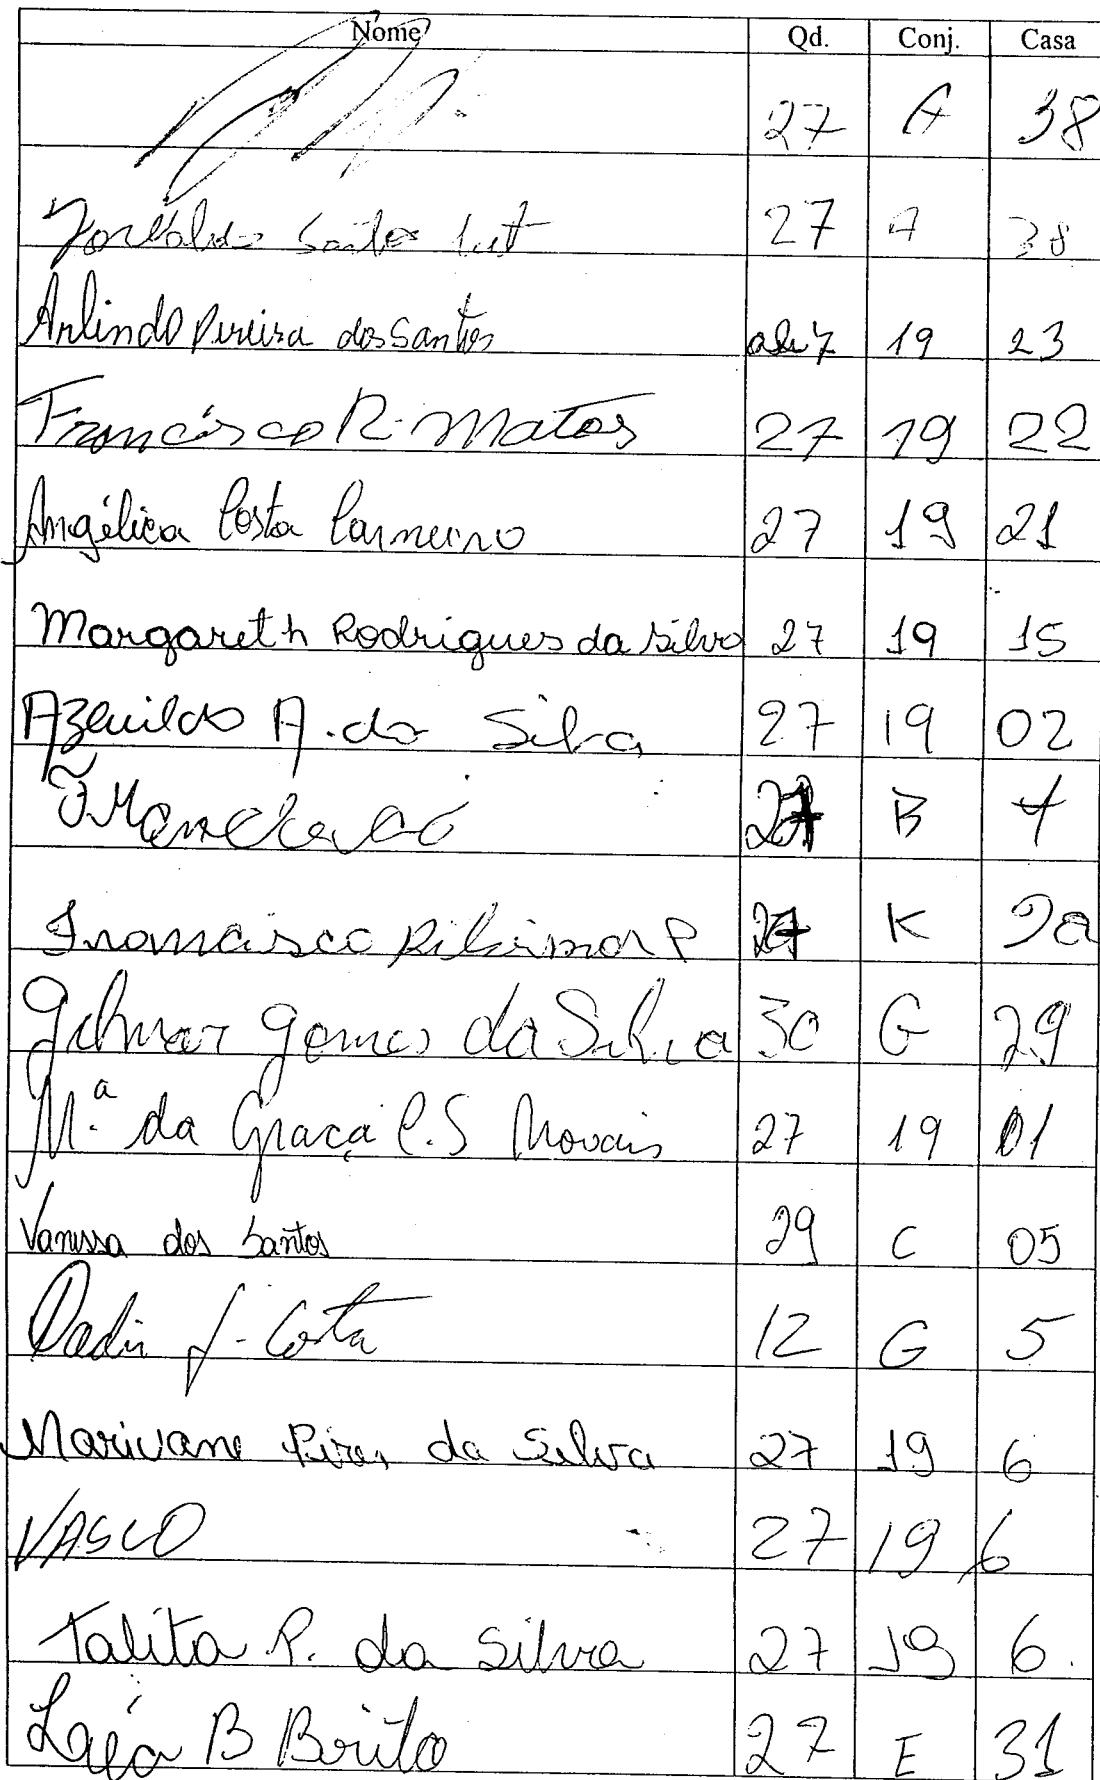 Nome Qd. Conj. Casa
27 A 38
27 A 38
Arlindo Pereira dos Santos 19 23
Francisco R. Matos 27 19 22
Angélica Costa Carneiro 27 19 21
Margareth Rodrigues da Silva 27 19 15
A. da Silva 27 19 02
27 B
Francisco 27 K
Gilmar Gomes da Silva 30 G 29
M.ª da Graça C. S 27 19 01
Vanessa dos Santos 29 C 05
Costa 12 G 5
Marivane Pires da Silva 27 19 6
VASCO 27 19 6
Talita P. da Silva 27 19 6.
B Brito 27 E 31